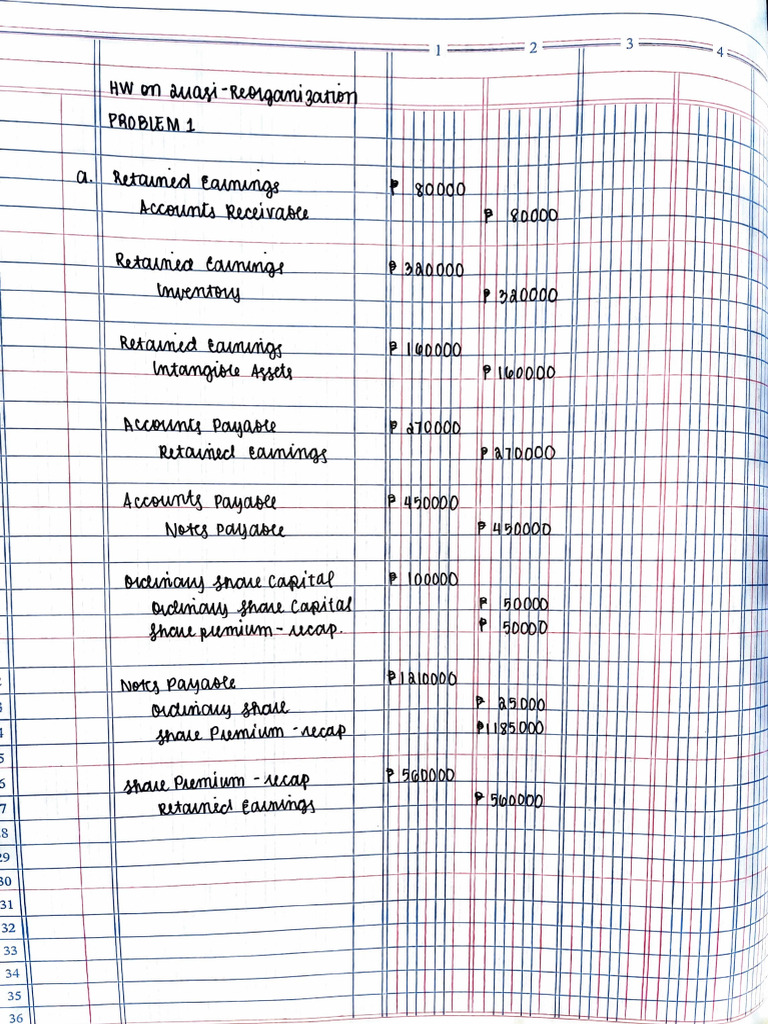 1 2 3 4
HW on Quasi-Reorganization
PROBLEM 1
a. Retained Earnings ₱ 80000
Accounts Receivable ₱ 80000
Retained Earnings ₱ 320000
Inventory ₱ 320000
Retained Earnings ₱ 160000
Intangible Assets ₱ 160000
Accounts Payable ₱ 270000
Retained Earnings ₱ 270000
Accounts Payable ₱ 450000
Notes Payable ₱ 450000
Ordinary Share Capital ₱ 100000
Ordinary Share Capital ₱ 50000
Share premium - recap. ₱ 50000
Notes Payable ₱1210000
Ordinary Share ₱ 25000
Share Premium - recap ₱1185000
Share Premium - recap ₱ 560000
Retained Earnings ₱ 560000
29
30
31
32
33
34
35
36